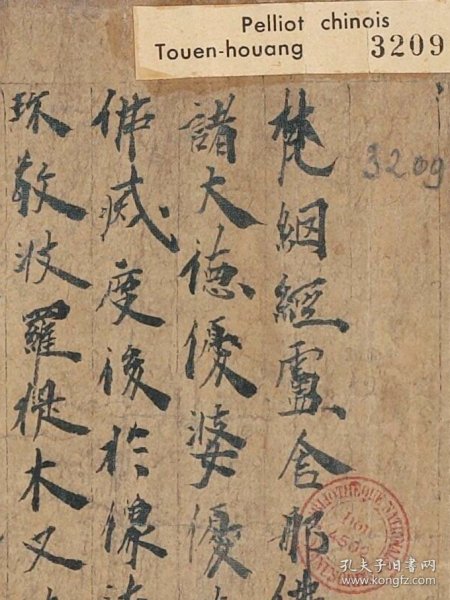 Pelliot chinois
Touen-houang 3209
3209
梵網經盧舍那佛
諸大德優婆優
佛滅度後於像
珎敬波羅提木叉
BIBLIOTHEQUE NATIONALE
孔夫子旧书网